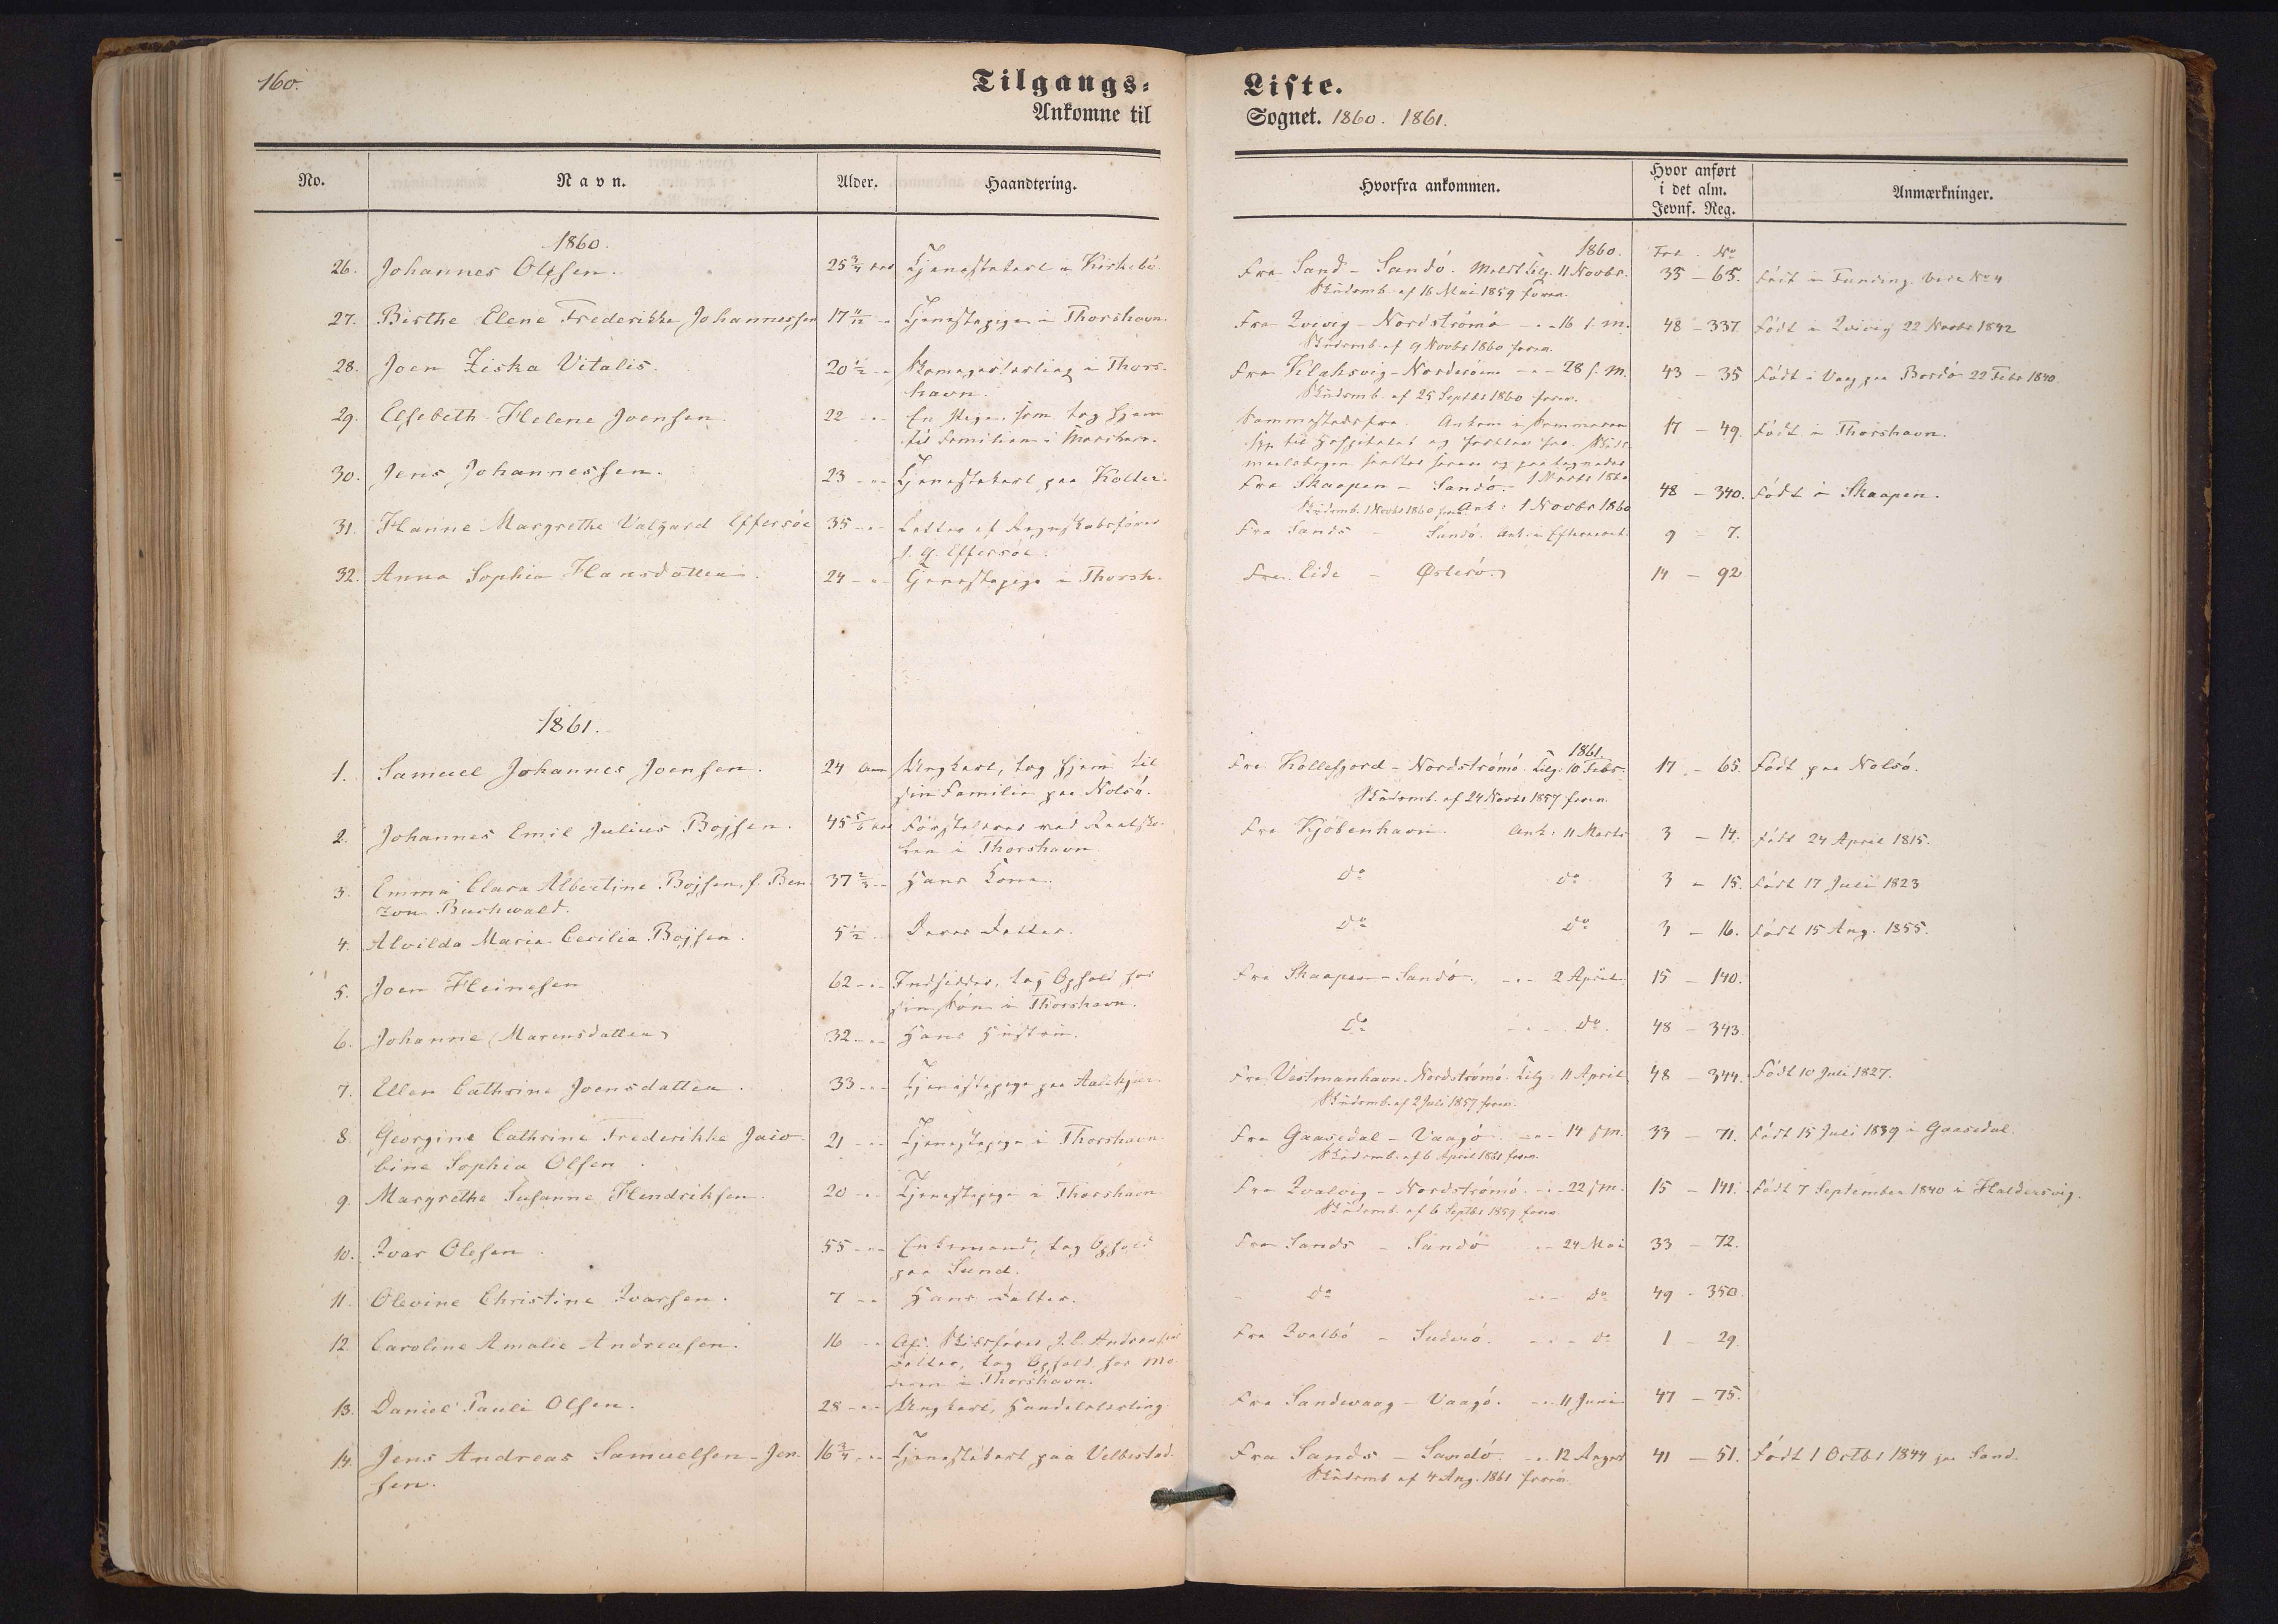 160.
Tilgangs-
Liste.
Ankomne til
Sognet. 1860. 1861.
No.
Navn.
Alder.
Haandtering.
Hvorfra ankommen.
Hvor anført
i det alm.
Jevnf. Reg.
Anmærkninger.
1860.
1860.
Fol. No
26. Johannes Olesen. 25 3/4 Tjenestekarl i Kirkebö. Fra Sand - Sandö. Meldt Tilg. 11 Novbr. 33 - 65. Född i Funding
Skudsmb. af 16 Mai 1859 forev.
27. Birthe Elene Frederikke Johannessen 17 11/12 - Tjenestepige i Thorshavn. Fra Qvivig - Nordströmö - 16 s. M. 48 - 337. Födt i Qvivig 22 Novbr 1842
Skudsmb. af 9 Novbr 1860 forev.
28. Joen Ziska Vitalis. 20 1/2 - Skomagerlærling i Thors-
havn.
Fra Klaksvig - Norderöerne - 28 s. M. 43 - 35 Födt i Vaag paa Bordö 22 Febr 1840.
Skudsmb. af 25 Septbr 1860 forev.
29. Elsebeth Helene Joensen. 22 - En Pige, som tog hjem
til Familien i Thorshavn.
Sammestedsfra. Ankom i Sommeren
17 - 49. Födt i Thorshavn.
30. Jens Johannessen. 23 - Tjenestekarl paa Kolter. Fra Skaapen - Sandö. 1 Novbr 1860 48 - 340. Födt i Skaapen.
Skudsmb. 1 Novbr 1860 forev. Ank: 1 Novbr 1860
31. Hanne Margrethe Valgard Effersöe 35 - Datter af Regnskabsförer
J. G. Effersöe.
Fra Sands - Sandö. Ank. i Efteraaret. 9 - 7.
32. Anna Sophia Hansdatter. 24 - Tjenestepige i Thorsh. Fra Eide - Österö. 14 - 92
1861.
1861.
1. Samuel Johannes Joensen. 24 Ungkarl, tog hjem til
sin Familie paa Nolsö.
Fra Kollefjord - Nordströmö. Tilg. 10 Febr. 17 - 65. Födt paa Nolsö.
Skudsmb. af 24 Novbr 1857 forev.
2. Johannes Emil Julius Bojsen. 45 5/6 Förstelærer ved Realsko-
len i Thorshavn.
Fra Kjöbenhavn. Ank: 11 Marts 3 - 14. Födt 24 April 1815.
3. Emma Clara Albertine Bojsen, f. Ben-
zon Buchwald.
37 2/3 - Hans Kone. do do 3 - 15. Födt 17 Juli 1823
4. Alvilda Maria Cecilia Bojsen. 5 1/2 - Deres Datter. do do 3 - 16. Födt 15 Aug. 1855.
5. Joen Heinesen 62 - Indsidder, tog Ophold hos
sin Sön i Thorshavn.
Fra Skaapen - Sandö. - 2 April. 15 - 140.
6. Johanne Marensdatter 32 - Hans Hustru. do - do. 48 - 343.
7. Ellen Cathrine Joensdatter. 33 - Tjenestepige paa Aalekjær. Fra Vestmanhavn. Nordströmö. Tilg 11 April 48 - 344. Födt 10 Juli 1827.
Skudsmb. af 2 Juli 1857 forev.
8. Georgine Cathrine Frederikke Jaco-
bine Sophia Olsen.
21 - Tjenestepige i Thorshavn Fra Gaasedal - Vaagö. - 14 s M. 33 - 71. Födt 15 Juli 1839 i Gaasedal.
Skudsmb. af 6 April 1861 forev.
9. Margrethe Susanne Hendriksen. 20 - Tjenestepige i Thorshavn. Fra Qvalvig - Nordströmö. - 22 s M. 15 - 141. Födt 7 September 1840 i Haldersvig.
Skudsmb. af 6 Septbr 1859 forev.
10. Ivar Olesen. 55 - Enkemand, tog Ophold
paa Sund.
Fra Sands - Sandö - 24 Mai 33 - 72.
11. Olevine Christine Ivarsen. 7 - Hans Datter. do - do 49 - 350.
12. Caroline Amalie Andreasen. 16 - Afd. Skibsförer J. P. Andreasens
Datter, tog Ophold hos Mo-
deren i Thorshavn.
Fra Qvalbö - Suderö. - do 1 - 29.
13. Daniel Pauli Olsen. 28 - Ungkarl, Handelslærling Fra Sandevaag - Vaagö. - 11 Juni 47 - 75.
14. Jens Andreas Samuelsen - Jen-
sen.
16 3/4 - Tjenestekarl paa Velbestad. Fra Sands - Sandö. - 12 August 41 - 51. Födt 1 Octbr 1844 paa Sand.
Skudsmb af 4 Aug. 1861 forev.